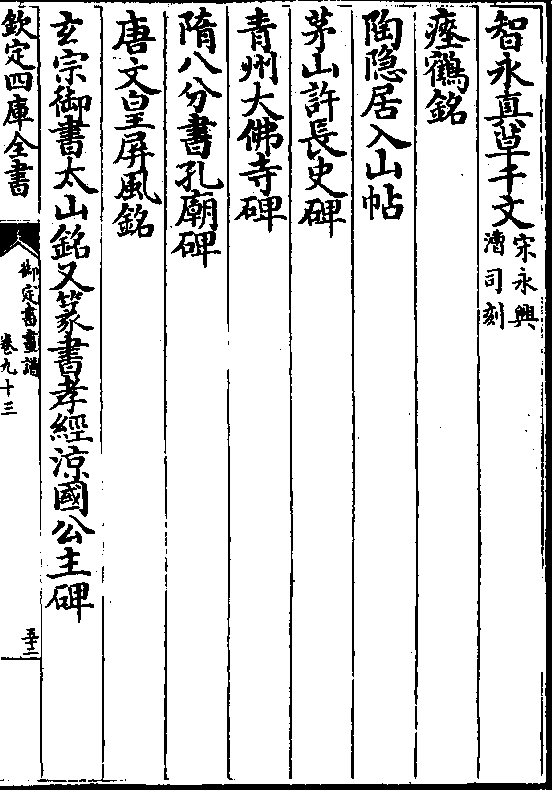 智永真草千文宋永興漕司刻
瘞鶴銘
陶隐居入山帖
茅山許長史碑
青州大佛寺碑
隋八分書孔廟碑
唐文皇屏風銘
玄宗御書太山銘又篆書孝經涼國公主碑
欽定四庫全書
御定書畫譜
卷九十三
五十二